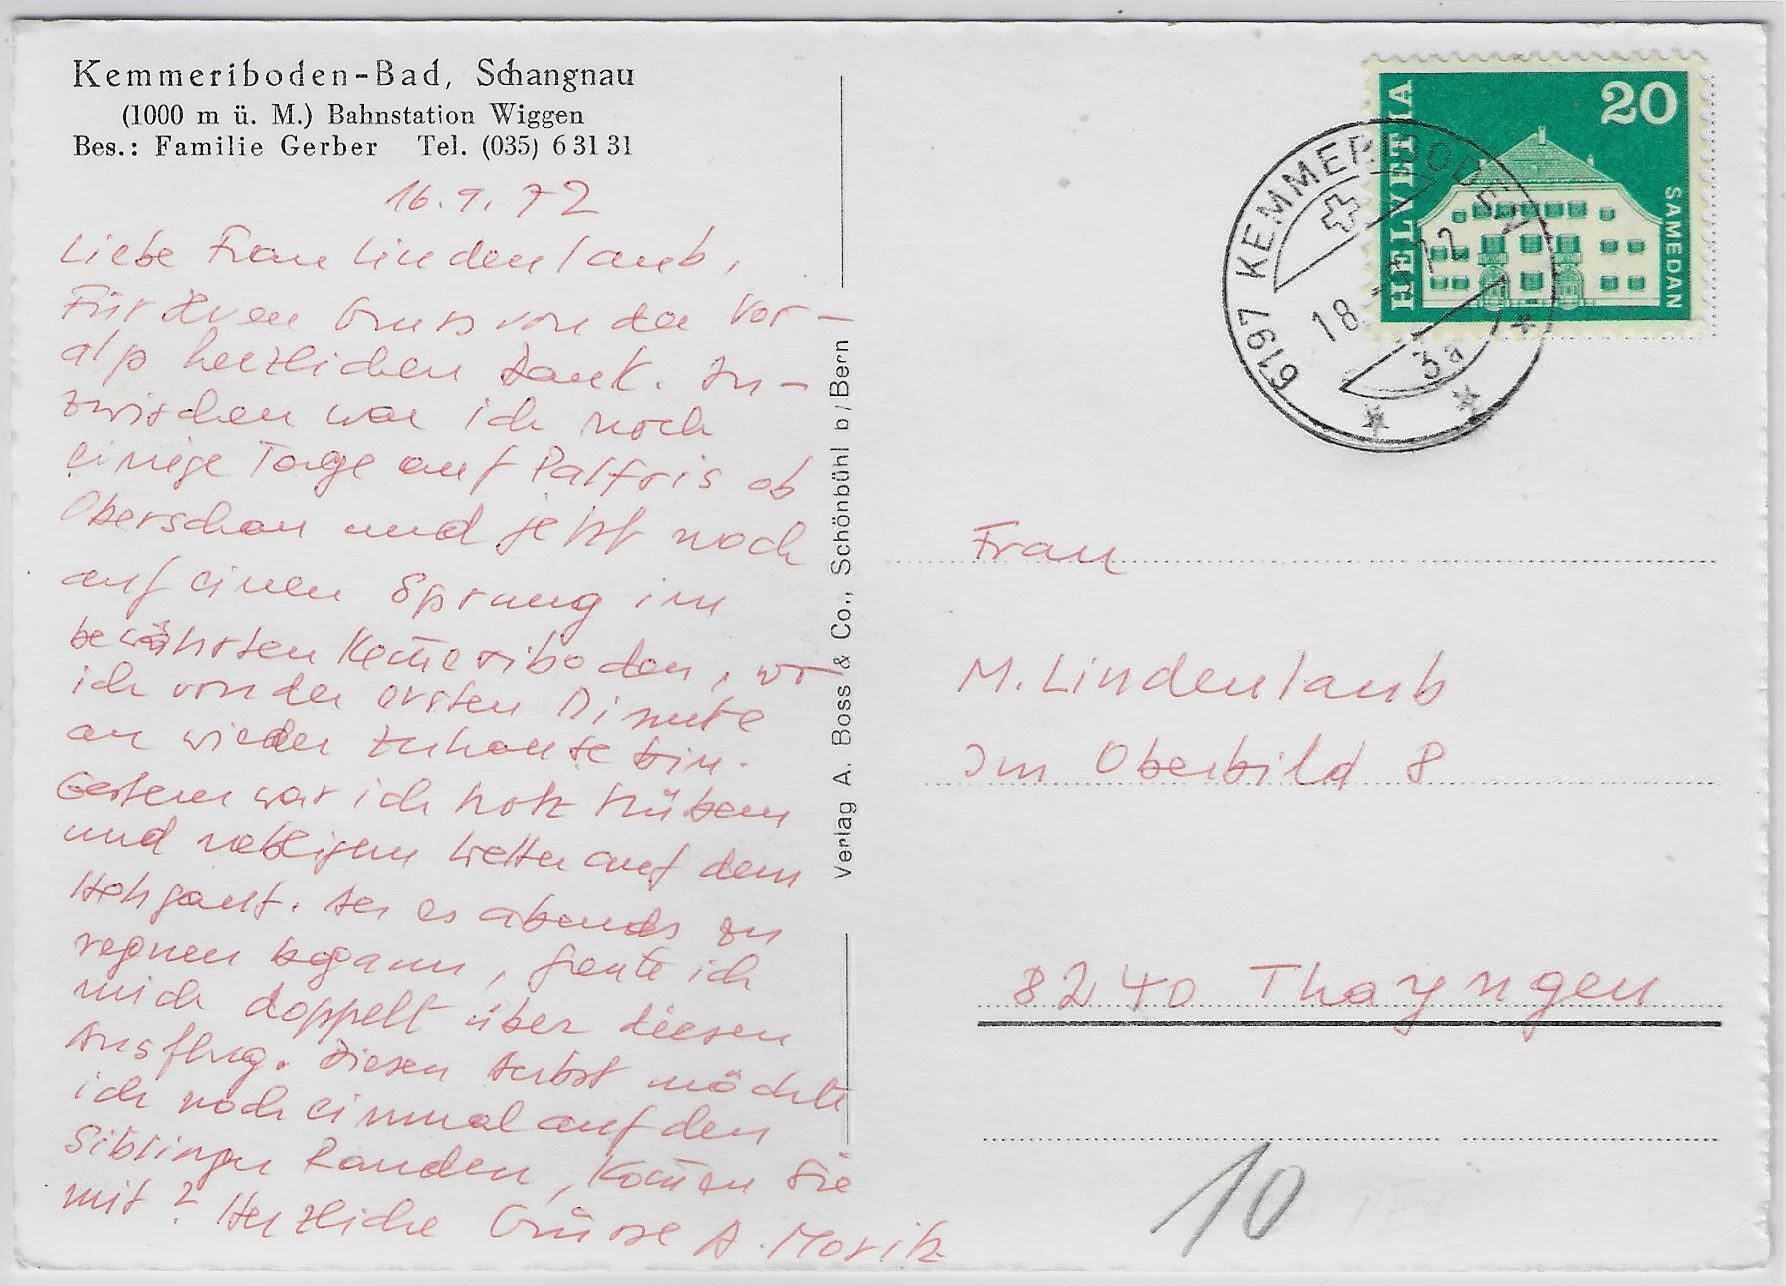 Kemmeriboden-Bad, Schangnau
(1000 m ü. M.) Bahnstation Wiggen
Bes.: Familie Gerber Tel. (035) 6 31 31
16. 9. 72
Liebe Frau Lindenlaub,
Für Ihren Gruss von der Vor-
alp herzlichen Dank. In-
zwischen war ich noch
einige Tage auf Palfris ob
Oberschan und jetzt noch
auf einen Sprung im
bewährten Kem̄eriboden, wo
ich von der ersten Minute
an wieder zuhause bin.
Gestern war ich trotz trübem
und nebligem Wetter auf dem
Hohgant. Als es abends zu
regnen begann, freute ich
mich doppelt über diesen
Ausflug. Diesen Herbst möchte
ich noch einmal auf den
Siblinger Randen, Kom̄en Sie
mit? Herzliche Grüsse A. Moritz
Verlag A. Boss & Co., Schönbühl b/Bern
HELVETIA
20
SAMEDAN
6197 KEMMERIBODEN
18. 72
3a
Frau
M. Lindenlaub
Im Oberbild 8
8240 Thayngen
10